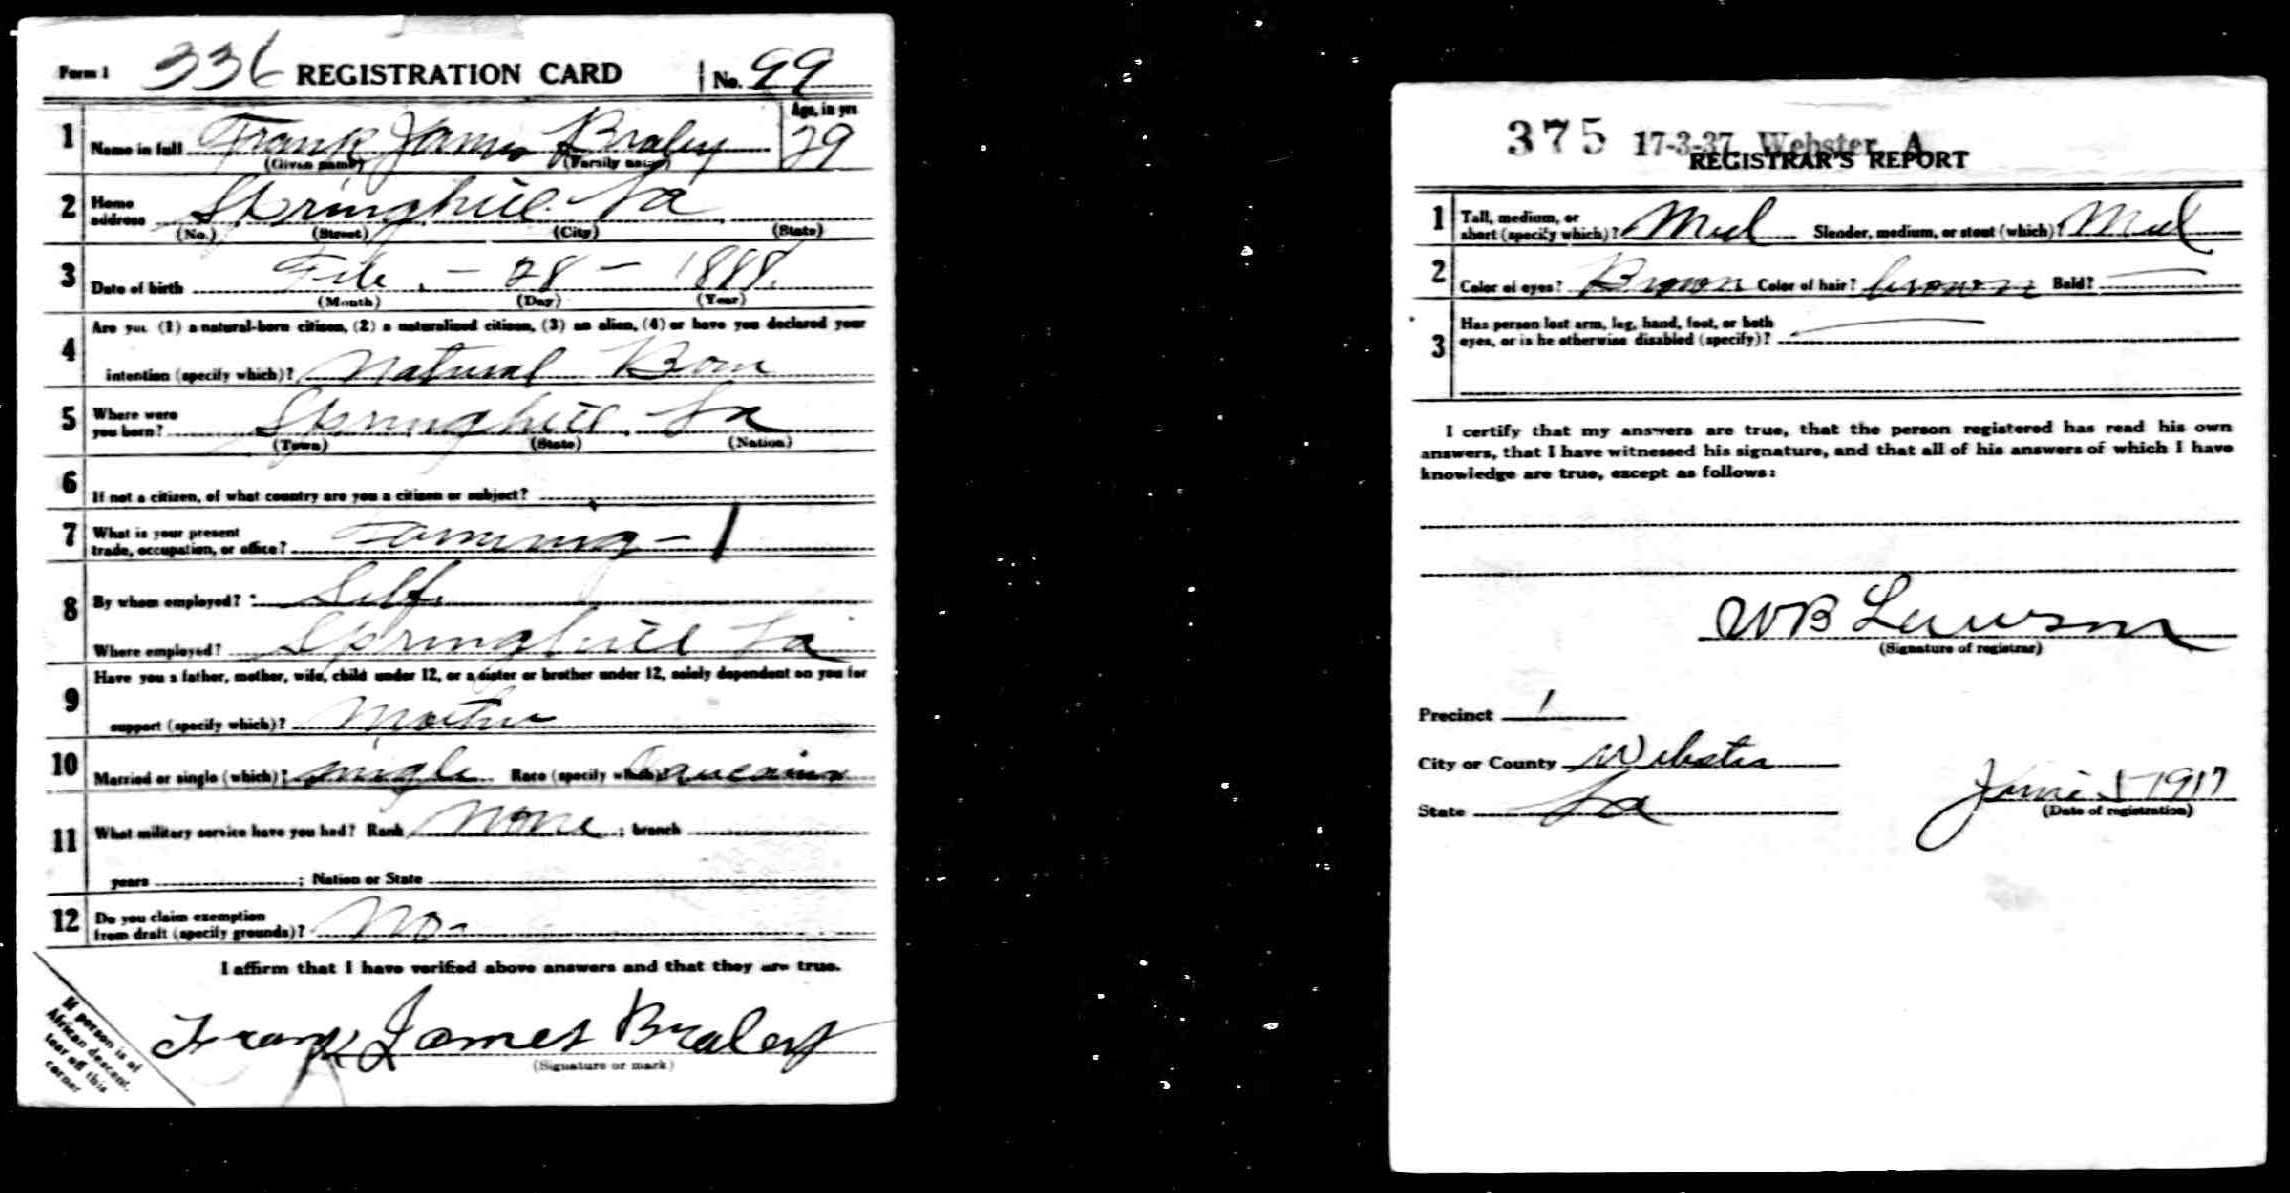 Form 1 336 REGISTRATION CARD No. 99
1 Name in full Frank James Braley Age, in yrs 29
(Given name) (Family name)
2 Home address Springhill La
(No.) (Street) (City) (State)
3 Date of birth Feb. - 28 - 1888.
(Month) (Day) (Year)
4 Are you (1) a natural-born citizen, (2) a naturalized citizen, (3) an alien, (4) or have you declared your
intention (specify which)? Natural Born
5 Where were you born? Springhill La
(Town) (State) (Nation)
6 If not a citizen, of what country are you a citizen or subject?
7 What is your present
trade, occupation, or office? Farming - 1
8 By whom employed? Self
Where employed? Springhill La
9 Have you a father, mother, wife, child under 12, or a sister or brother under 12, solely dependent on you for
support (specify which)? Mother
10 Married or single (which)? single Race (specify which)? Caucasian
11 What military service have you had? Rank None ; branch
years ; Nation or State
12 Do you claim exemption
from draft (specify grounds)? No -
I affirm that I have verified above answers and that they are true.
Frank James Braley
(Signature or mark)
If person is of
African descent,
tear off this
corner
375 17-3-37 Webster A
REGISTRAR'S REPORT
1 Tall, medium, or
short (specify which)? Med Slender, medium, or stout (which)? Med
2 Color of eyes? Brown Color of hair? brown Bald? —
3 Has person lost arm, leg, hand, foot, or both
eyes, or is he otherwise disabled (specify)? —
I certify that my answers are true, that the person registered has read his own
answers, that I have witnessed his signature, and that all of his answers of which I have
knowledge are true, except as follows:
WB Lawson
(Signature of registrar)
Precinct 1
City or County Webster
State La
June 5 1917
(Date of registration)